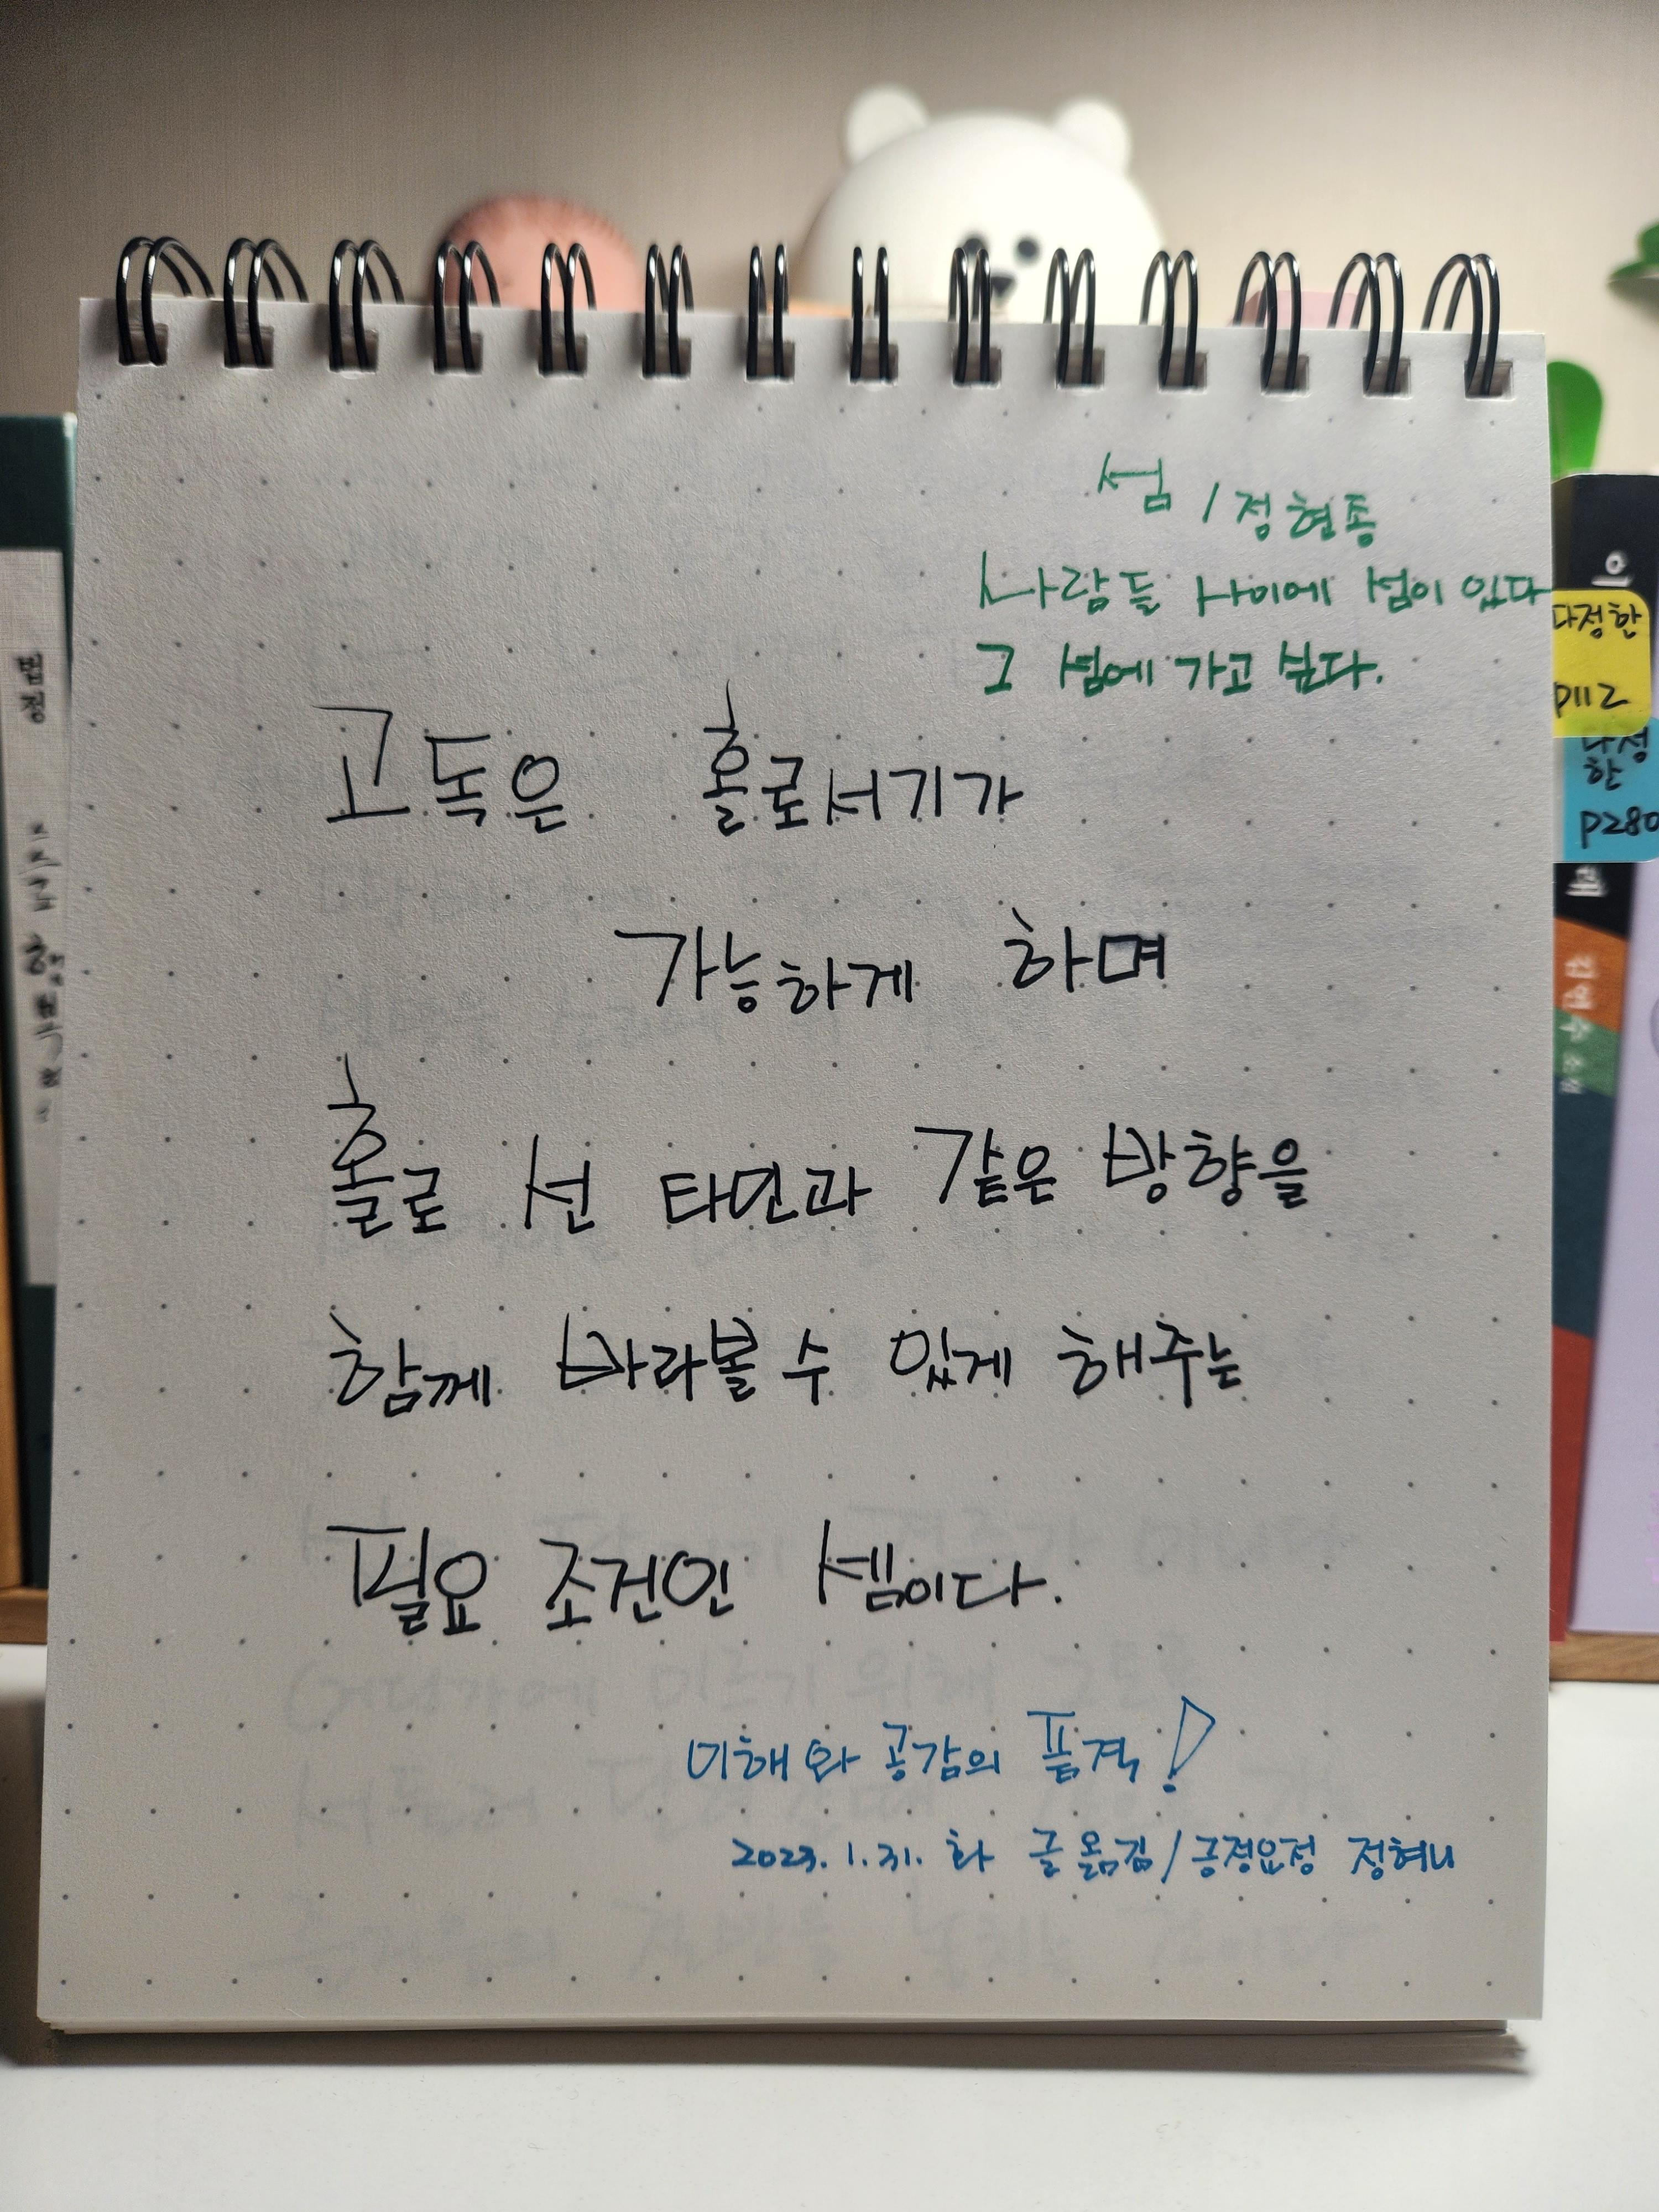 섬 / 정현종
사람들 사이에 섬이 있다
그 섬에 가고 싶다.
고독은 홀로서기가
가능하게 하며
홀로 선 타인과 같은 방향을
함께 바라볼 수 있게 해주는
필요 조건인 셈이다.
이해와 공감의 품격!
2023. 1. 31. 화 글 옮김 / 긍정요정 정혜니
법정
이
다정한
p112
다정
한
p280
김연수 소설